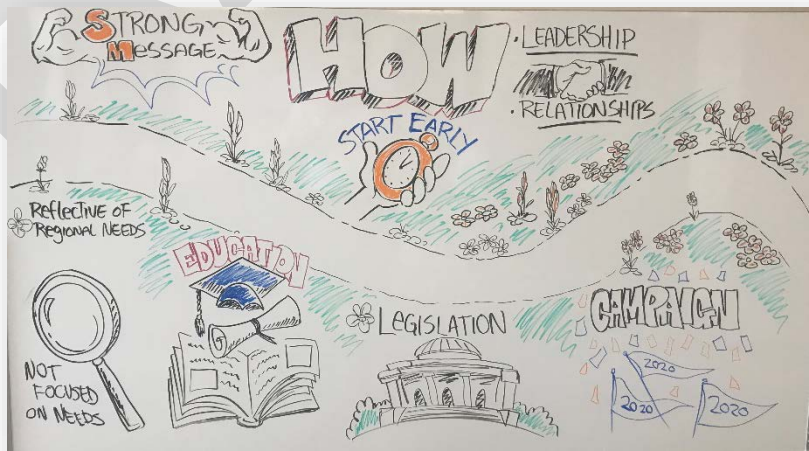 STRONG
MESSAGE
HOW
• LEADERSHIP
• RELATIONSHIPS
START EARLY
REFLECTIVE OF
REGIONAL NEEDS
EDUCATION
NOT
FOCUSED
ON NEEDS
LEGISLATION
CAMPAIGN
2020
2020
2020